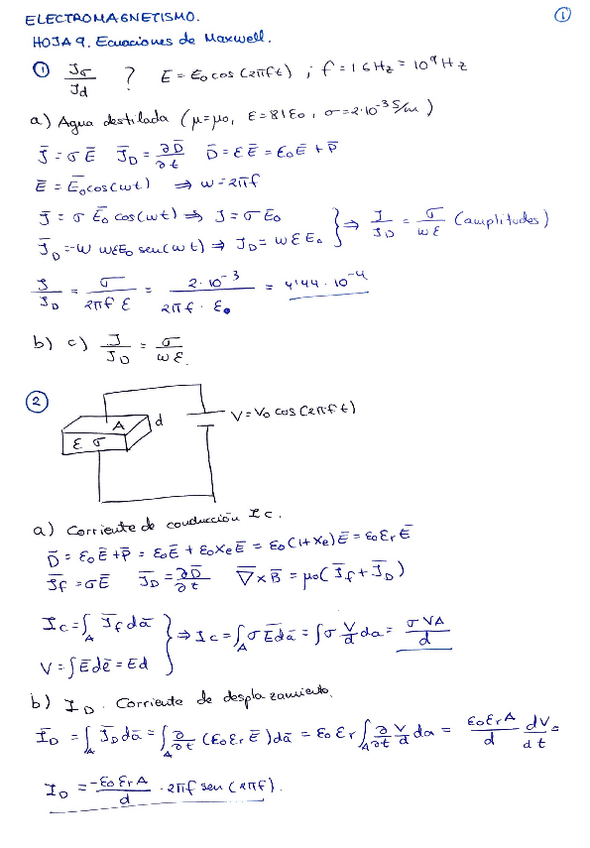 ELECTROMAGNETISMO. ①
HOJA 9. Ecuaciones de Maxwell.
① Jσ/Jd ? E = E₀ cos(2πft) ; f = 1 GHz = 10⁹ Hz
a) Agua destilada (μ=μ₀, ε=81ε₀, σ=2·10⁻³ S/m)
J̄ = σĒ J̄_D = ∂D̄/∂t D̄ = εĒ = ε₀Ē + P̄
Ē = Ē₀cos(ωt) ⇒ ω = 2πf
J̄ = σ Ē₀ cos(ωt) ⇒ J = σE₀
J̄_D = -ω ωεE₀ sen(ωt) ⇒ J_D = ωεE₀ } ⇒ J/J_D = σ/ωε (amplitudes)
J/J_D = σ/2πfε = 2·10⁻³/2πf·ε₀ = 4'44·10⁻⁴
b) c) J/J_D = σ/ωε.
②
A d
ε σ
V = V₀ cos(2π·ft)
a) Corriente de conducción Ic.
D̄ = ε₀Ē + P̄ = ε₀Ē + ε₀XeĒ = ε₀(1+Xe)Ē = ε₀εrĒ
J̄f = σĒ J̄_D = ∂D̄/∂t ∇̄×B̄ = μ₀(J̄f + J̄_D)
Ic = ∫_A J̄f dā
V = ∫Ēdē = Ed } ⇒ Ic = ∫_A σĒdā = ∫σ V/d da = σVA/d
b) I_D. Corriente de desplazamiento.
I_D = ∫_A J̄_D dā = ∫_A ∂/∂t (ε₀εrĒ)dā = ε₀εr ∫_A ∂/∂t V/d da = ε₀εrA/d dV/dt =
I_D = -ε₀εrA/d · 2πf sen(2πf).